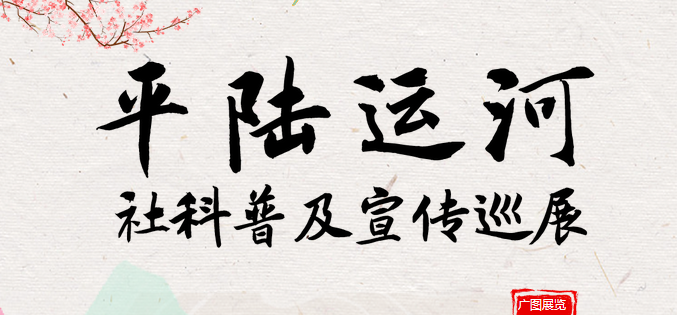 平陆运河
社科普及宣传巡展
广图展览